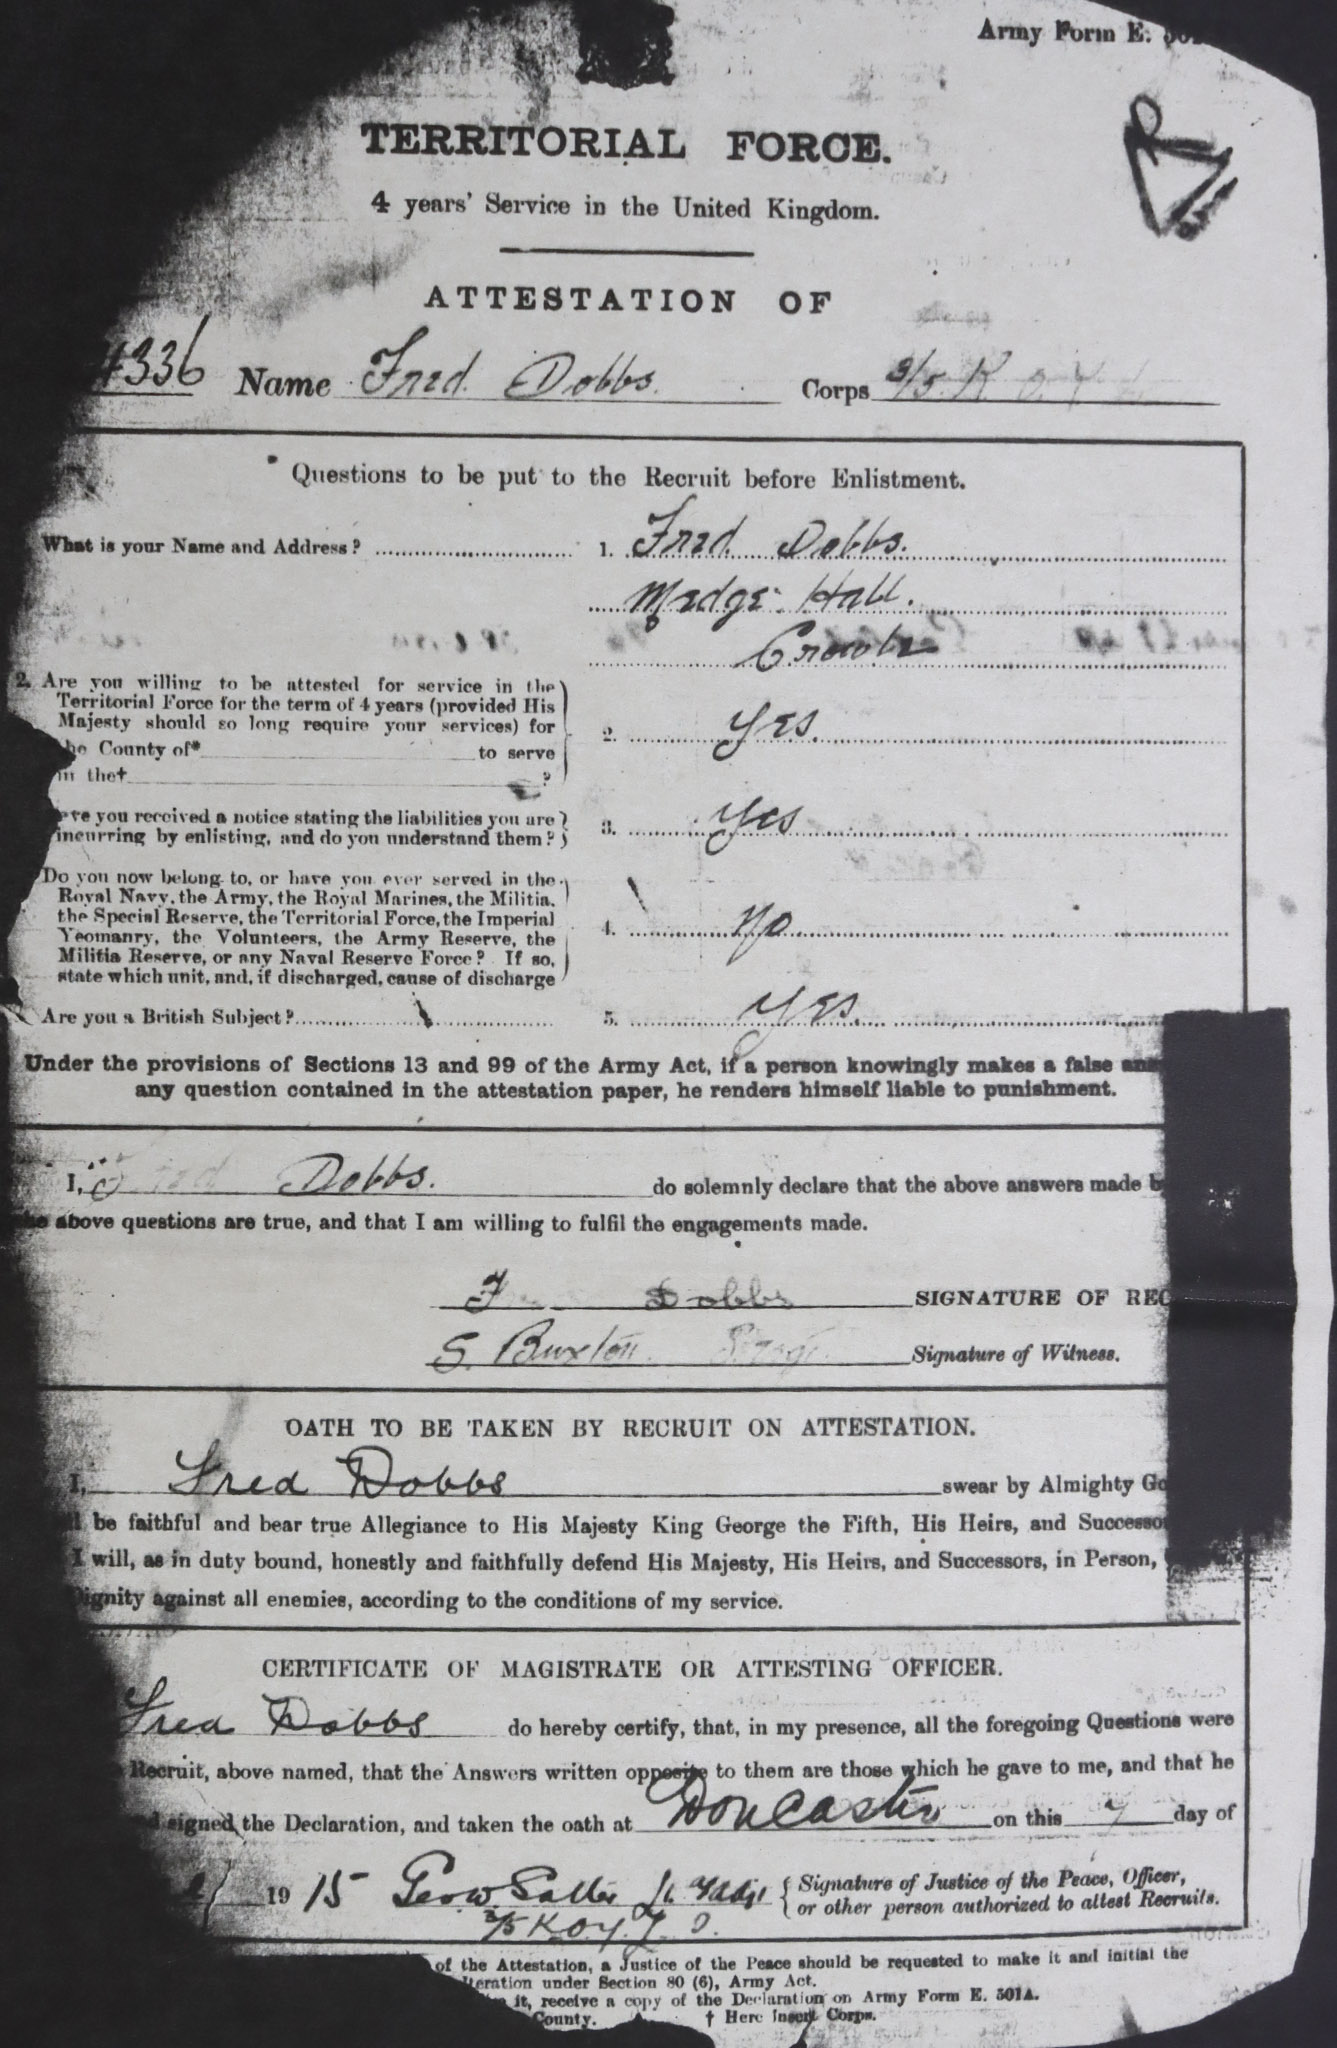 Army Form E. 501
TERRITORIAL FORCE.
4 years' Service in the United Kingdom.
ATTESTATION OF
4336 Name Fred Dobbs. Corps 3/5 K O Y L
Questions to be put to the Recruit before Enlistment.
What is your Name and Address? 1. Fred Dobbs.
Medge Hall.
Crowle
2. Are you willing to be attested for service in the
Territorial Force for the term of 4 years (provided His
Majesty should so long require your services) for
the County of* to serve
in the† ?
2. Yes.
ve you received a notice stating the liabilities you are
incurring by enlisting, and do you understand them?
3. Yes
Do you now belong to, or have you ever served in the
Royal Navy, the Army, the Royal Marines, the Militia,
the Special Reserve, the Territorial Force, the Imperial
Yeomanry, the Volunteers, the Army Reserve, the
Militia Reserve, or any Naval Reserve Force? If so,
state which unit, and, if discharged, cause of discharge
4. No
Are you a British Subject? 5. Yes.
Under the provisions of Sections 13 and 99 of the Army Act, if a person knowingly makes a false ans
any question contained in the attestation paper, he renders himself liable to punishment.
I, Fred Dobbs. do solemnly declare that the above answers made b
he above questions are true, and that I am willing to fulfil the engagements made.
F Dobbs SIGNATURE OF REC
S. Buxton Sergt. Signature of Witness.
OATH TO BE TAKEN BY RECRUIT ON ATTESTATION.
I, Fred Dobbs swear by Almighty Go
ll be faithful and bear true Allegiance to His Majesty King George the Fifth, His Heirs, and Successo
I will, as in duty bound, honestly and faithfully defend His Majesty, His Heirs, and Successors, in Person,
Dignity against all enemies, according to the conditions of my service.
CERTIFICATE OF MAGISTRATE OR ATTESTING OFFICER.
Fred Dobbs do hereby certify, that, in my presence, all the foregoing Questions were
Recruit, above named, that the Answers written opposite to them are those which he gave to me, and that he
d signed the Declaration, and taken the oath at Doncaster on this 7 day of
1915 Geo W. Salter Lt & Adjt Signature of Justice of the Peace, Officer,
or other person authorized to attest Recruits.
3/5 K O Y L I
of the Attestation, a Justice of the Peace should be requested to make it and initial the
lteration under Section 80 (6), Army Act.
it, receive a copy of the Declaration on Army Form E. 501A.
County. † Here insert Corps.